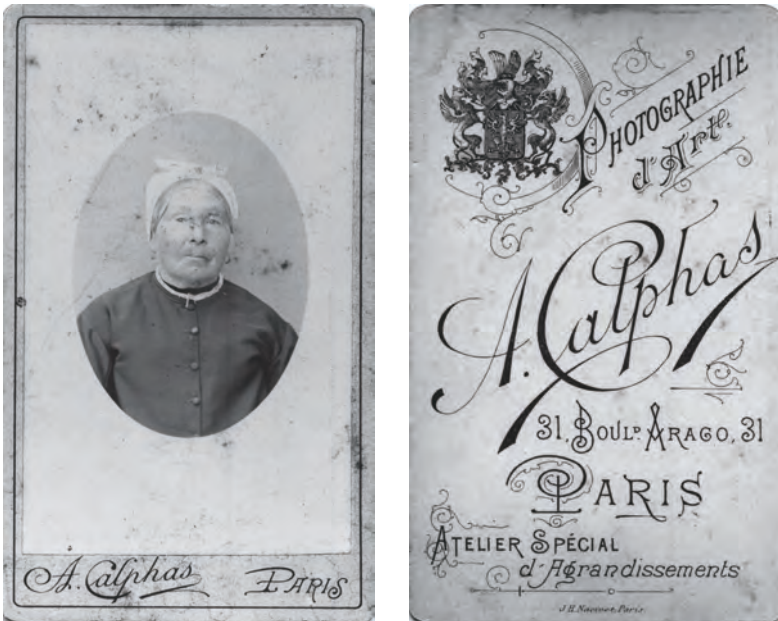 A. Calphas PARIS
PHOTOGRAPHIE
d'Art.
A. Calphas
31, BOULD. ARAGO, 31
PARIS
ATELIER SPÉCIAL
d'Agrandissements
Paris